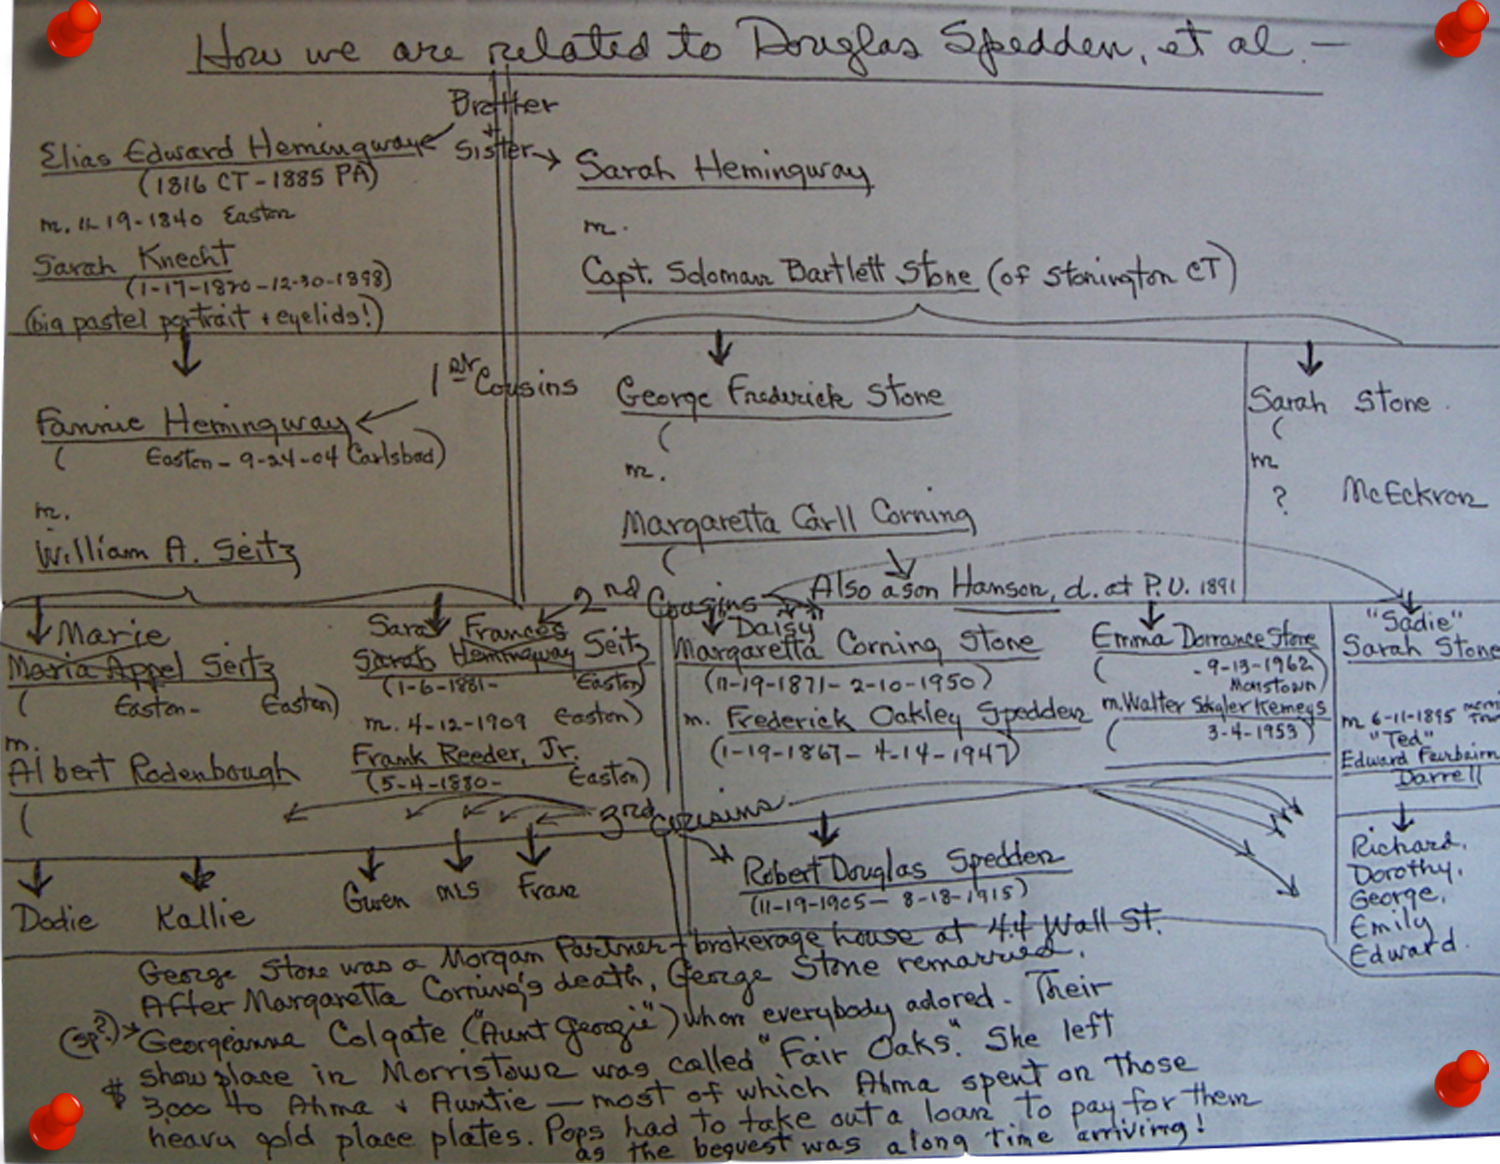 How we are related to Douglas Spedden, et al. —
Brother
+
Sister
Elias Edward Hemingway
(1816 CT - 1885 PA)
m. 11-19-1840 Easton
Sarah Knecht
(1-17-1820 - 12-30-1898)
(big pastel portrait + eyelids!)
Sarah Hemingway
m.
Capt. Soloman Bartlett Stone (of Stonington CT)
1st Cousins
Fannie Hemingway
( Easton - 9-24-04 Carlsbad)
m.
William A. Seitz
George Frederick Stone
(
m.
Margaretta Carll Corning
(
Also a son Hanson, d. at P.U. 1891
Sarah Stone
(
m
? McEckron
2nd Cousins
Marie
Maria Appel Seitz
( Easton - Easton)
m.
Albert Rodenbough
(
Sara Frances
Sarah Hemingway Seitz
(1-6-1881- Easton)
m. 4-12-1909 Easton)
Frank Reeder, Jr.
(5-4-1880- Easton)
"Daisy"
Margaretta Corning Stone
(11-19-1871 - 2-10-1950)
m. Frederick Oakley Spedden
(1-19-1867 - 4-14-1947)
Emma Dorrance Stone
( - 9-13-1962
Morristown)
m. Walter Kemeys
( 3-4-1953)
"Sadie"
Sarah Stone
m 6-11-1895
"Ted"
Edward Fairbairn
Darrell
3rd Cousins
Dodie
Kallie
Gwen
MLS
Fran
Robert Douglas Spedden
(11-19-1905 - 8-18-1915)
Richard,
Dorothy,
George,
Emily
Edward.
George Stone was a Morgan Partner - brokerage house at 44 Wall St.
After Margaretta Corning's death, George Stone remarried.
(sp?) Georgeanna Colgate ("Aunt Georgie") whom everybody adored. Their
show place in Morristown was called "Fair Oaks." She left
$ 3000 to Ahma + Auntie — most of which Ahma spent on those
heavy gold place plates. Pops had to take out a loan to pay for them
as the bequest was a long time arriving!